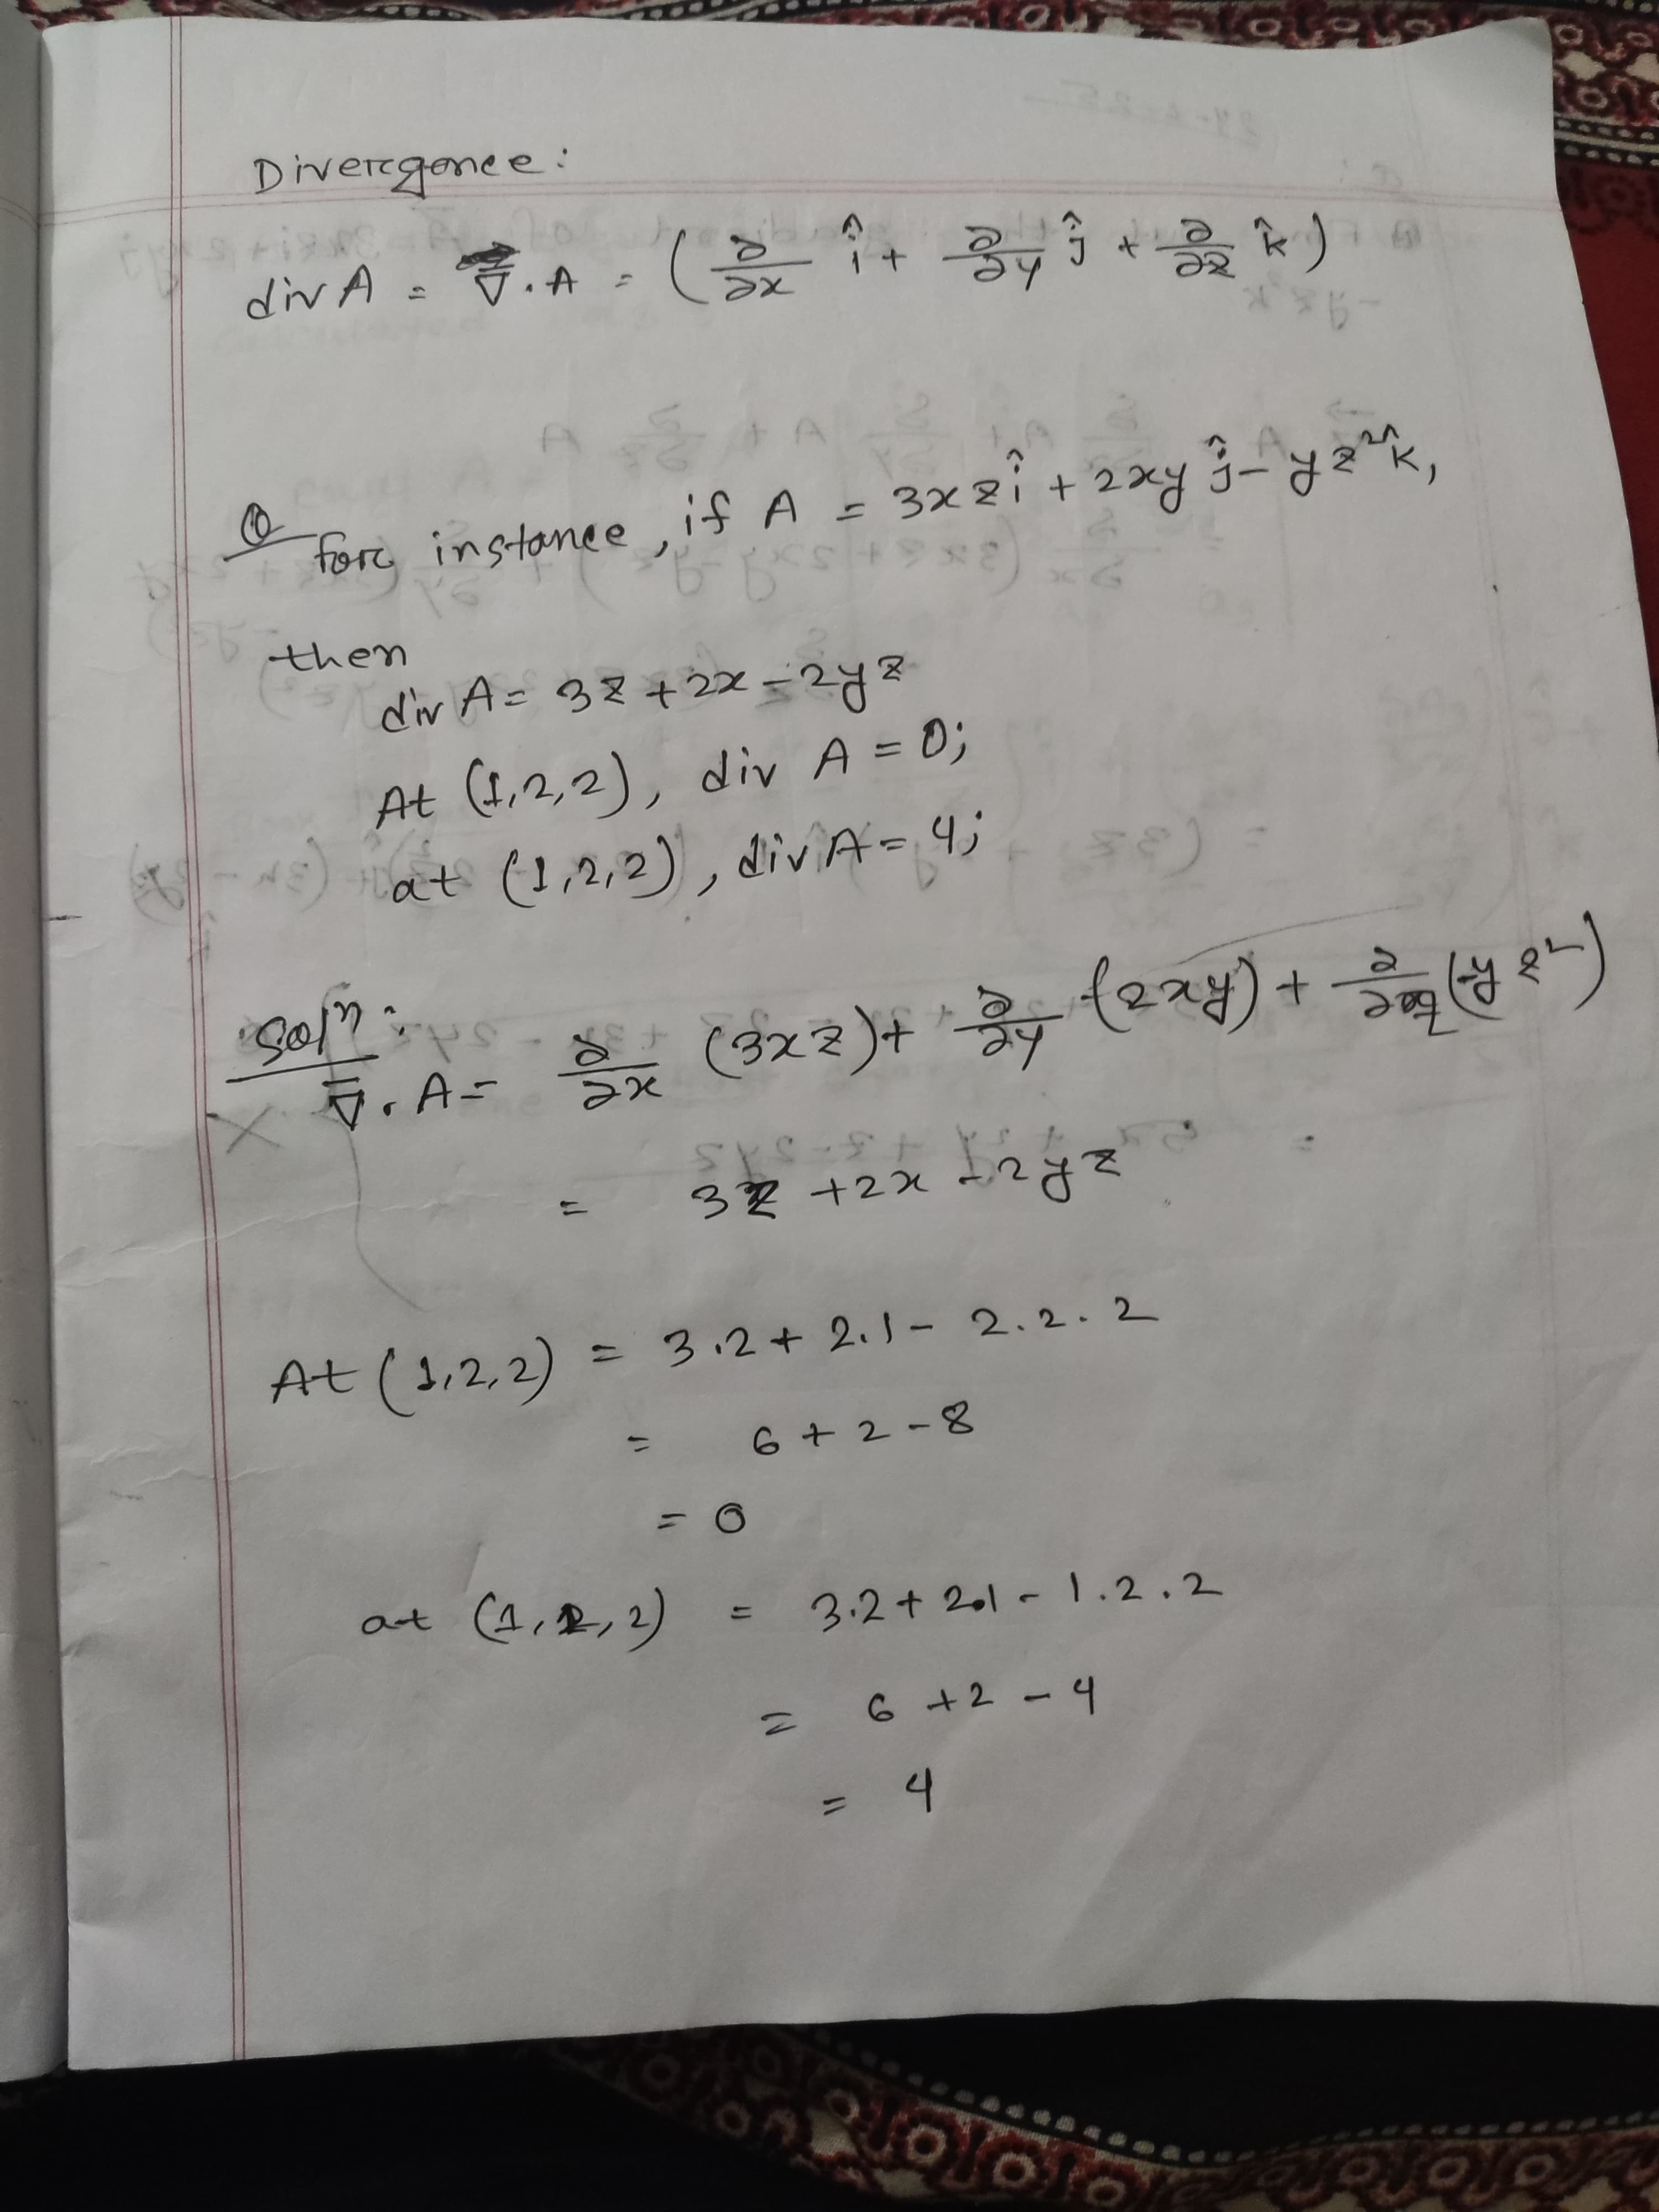 Divergence:
div A = ∇̅ . A = (∂/∂x î + ∂/∂y ĵ + ∂/∂z k̂)
Q for instance, if A = 3xzî + 2xy ĵ - yz² k̂,
then
div A = 3z + 2x - 2yz
At (1,2,2), div A = 0;
at (1,2,2), div A = 4;
Solⁿ:
∇̅ . A = ∂/∂x (3xz) + ∂/∂y (2xy) + ∂/∂z (-yz²)
= 3z + 2x - 2yz
At (1,2,2) = 3.2 + 2.1 - 2.2.2
= 6 + 2 - 8
= 0
at (1, 2, 2) = 3.2 + 2.1 - 1.2.2
= 6 + 2 - 4
= 4